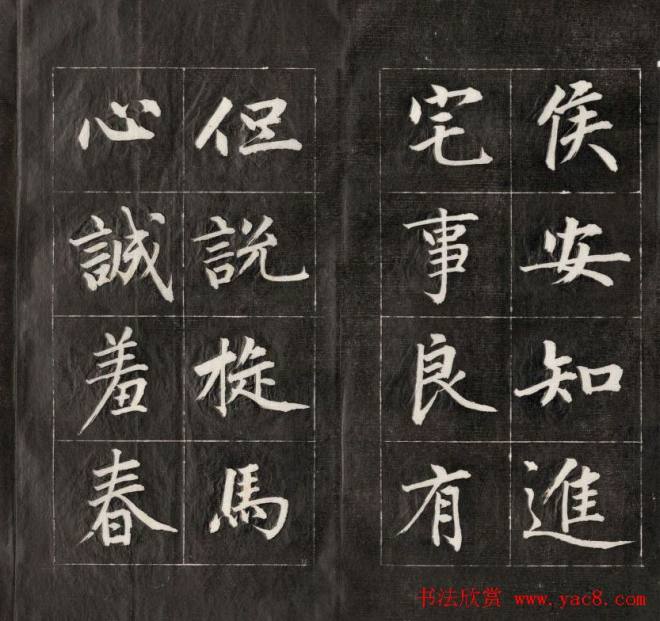 侯安知進
宅事良有
但說旋馬
心誠羞春
书法欣赏 www.yac8.com